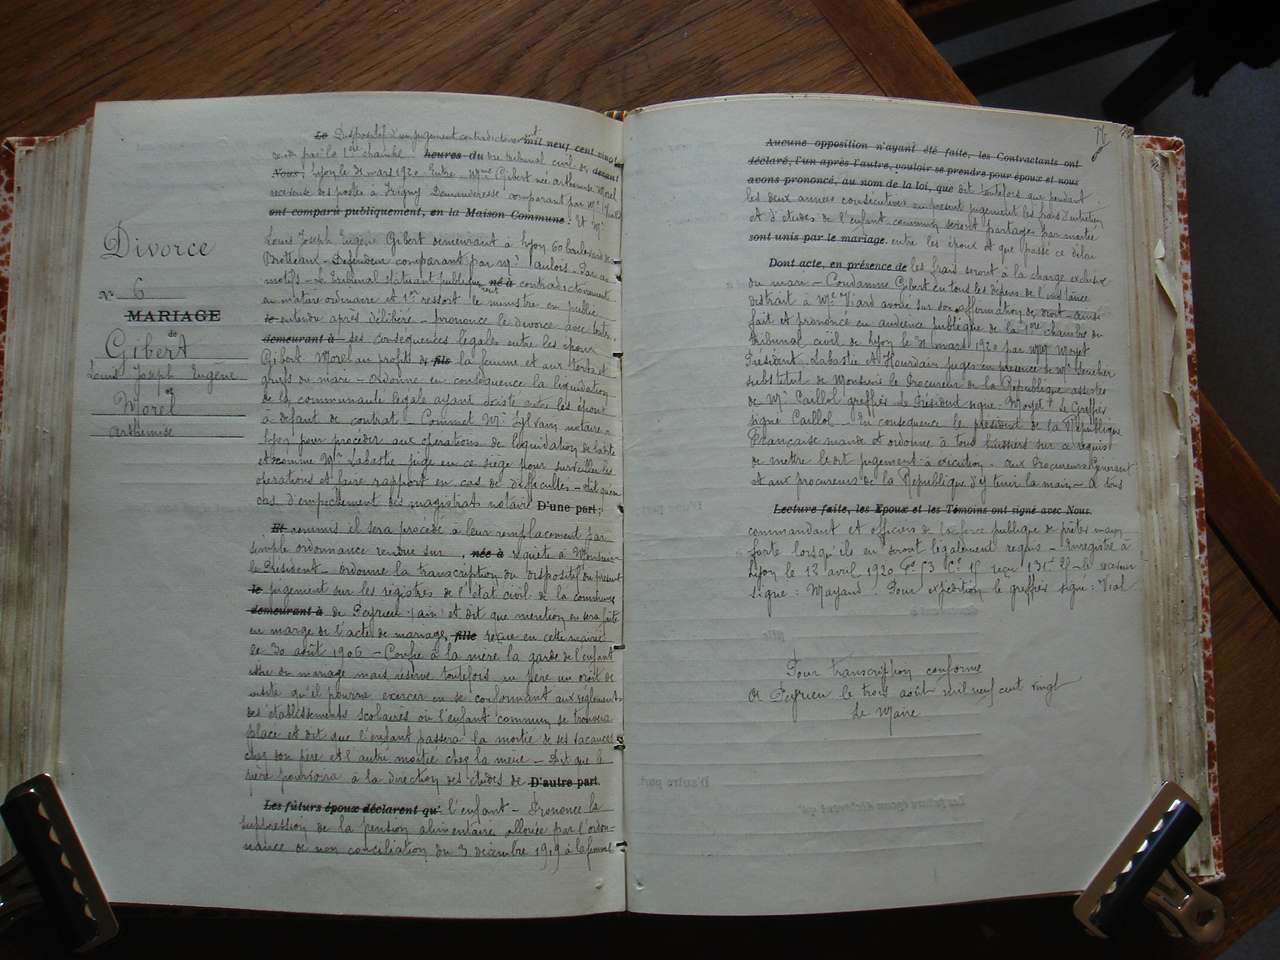 Divorce
N° 6
MARIAGE
de
Gibert
Louis Joseph Eugène
et
Morel
Arthémise
Le Dispositif d'un jugement contradictoirement mil neuf cent vingt
rendu par la 1ère chambre heures du tribunal civil de devant
Nous, Lyon le mars 1920 Entre Mme Gibert née Arthémise Morel
receveuse des postes à Demanderesse comparant par Me
ont comparu publiquement, en la Maison Commune: Et Mr
Louis Joseph Eugène Gibert demeurant à Lyon 60 boulevard des
Brotteaux – Défendeur comparant par Me – Par ces
motifs – Le Tribunal statuant né à contradictoirement
en matière ordinaire et 1er ressort le ministère public
le entendu après délibéré – prononce le divorce avec toutes
demeurant à ses conséquences légales entre les époux
Gibert Morel au profit de fils la femme et aux torts et
griefs du mari – Ordonne en conséquence la liquidation
de la communauté légale ayant existé entre les époux
à défaut de contrat – Commet Me Sylvain notaire à
Lyon pour procéder aux opérations de liquidation de la dite
et nomme Mr Labastie juge en ce siège pour surveiller les
opérations et faire rapport en cas de difficultés – dit qu'en
cas d'empêchement des magistrat notaire D'une part;
Et commis il sera procédé à leur remplacement par
simple ordonnance rendue sur , née à requête à Monsieur
le Président – ordonne la transcription du dispositif du présent
le jugement sur les registres de l'état civil de la commune
demeurant à de Peyrieu (ain) et dit que mention en sera faite
en marge de l'acte de mariage, fille reçue en cette mairie
le 30 août 1906 – Confie à la mère la garde de l'enfant
du mariage mais réserve toutefois au père un droit de
visite qu'il pourra exercer en se conformant aux règlements
des établissements scolaires où l'enfant commun se trouvera
placé et dit que l'enfant passera la moitié de ses vacances
chez son père et l'autre moitié chez la mère – Dit que le
père pourvoira à la direction des études de D'autre part.
Les futurs époux déclarent qu' l'enfant – Prononce la
suppression de la pension alimentaire allouée par l'ordon-
nance de non conciliation du 3 décembre 1919 à la femme
Aucune opposition n'ayant été faite, les Contractants ont
déclaré, l'un après l'autre, vouloir se prendre pour époux et nous
avons prononcé, au nom de la loi, que dit toutefois que pendant
les deux années consécutives au présent jugement les frais d'entretien
et d'études de l'enfant commun seront partagés par moitié
sont unis par le mariage entre les époux et que passé ce délai
Dont acte, en présence de les frais seront à la charge exclusive
du mari – Condamne Gibert en tous les dépens de l'instance
distrait à Me Viard avoué sur son affirmation de droit – ainsi
fait et prononcé en audience publique de la 1ère chambre du
tribunal civil de Lyon le mars 1920 par MM Moyet
Président Labastie et Hourdain juges en présence de Mr
substitut de Monsieur le Procureur de la République assistés
de Mr Caillol greffier Le Président signé: Moyet Le Greffier
signé Caillol – En conséquence le président de la République
Française mande et ordonne à tous huissiers sur ce requis
de mettre le dit jugement à exécution. aux Procureurs Généraux
et aux procureurs de la République d'y tenir la main – à tous
Lecture faite, les Epoux et les Témoins ont signé avec Nous.
commandant et officiers de la force publique de prêter main
forte lorsqu'ils en seront légalement requis – Enregistré à
Lyon le 13 avril 1920 Fo 53 reçu le receveur
signé: Mayand. Pour expédition le greffier signé: Vial
Pour transcription conforme
A Peyrieu le trois août mil neuf cent vingt
Le Maire